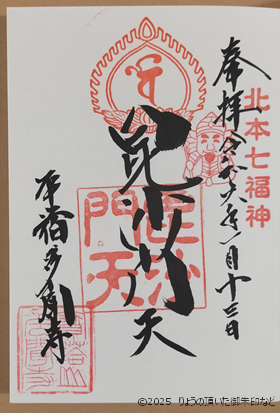 奉拝 令和六年一月十三日
北本七福神
毘沙門天
毘沙
門天
©2025 りょうの頂いた御朱印など